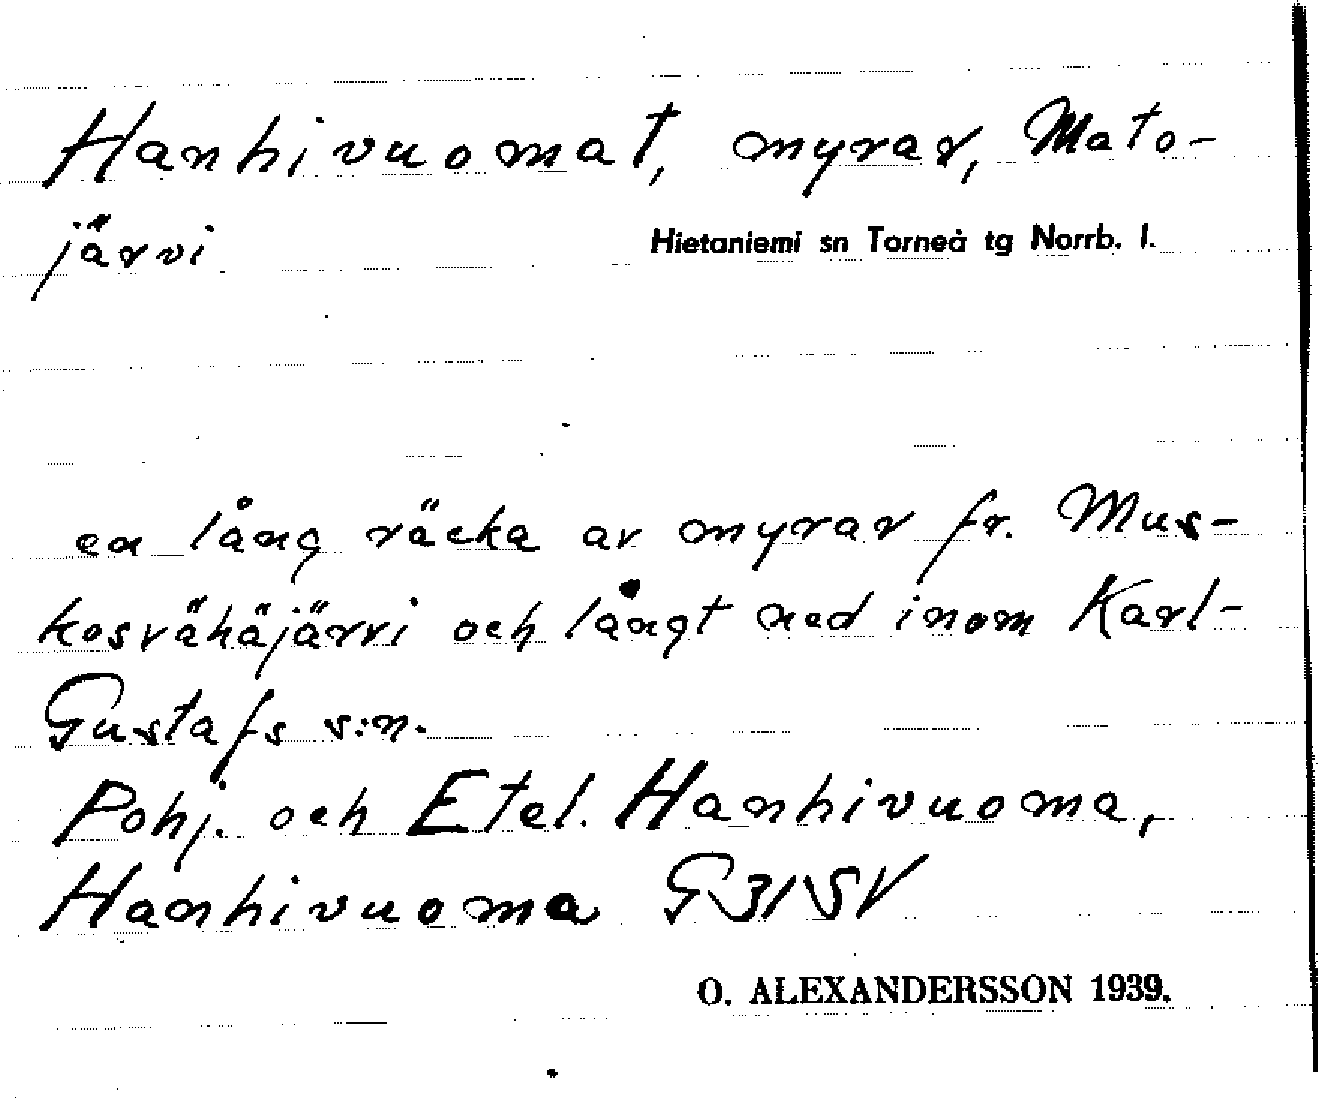 Hanhivuomat, myrar, Mato-
järvi Hietaniemi sn Torneå tg Norrb. l.
en lång räcka av myrar fr. Mus-
kosvähäjärvi och långt ned inom Karl-
Gustafs s:n.
Pohj. och Etel. Hanhivuoma,
Hanhivuoma G 31 SV
O. ALEXANDERSSON 1939.